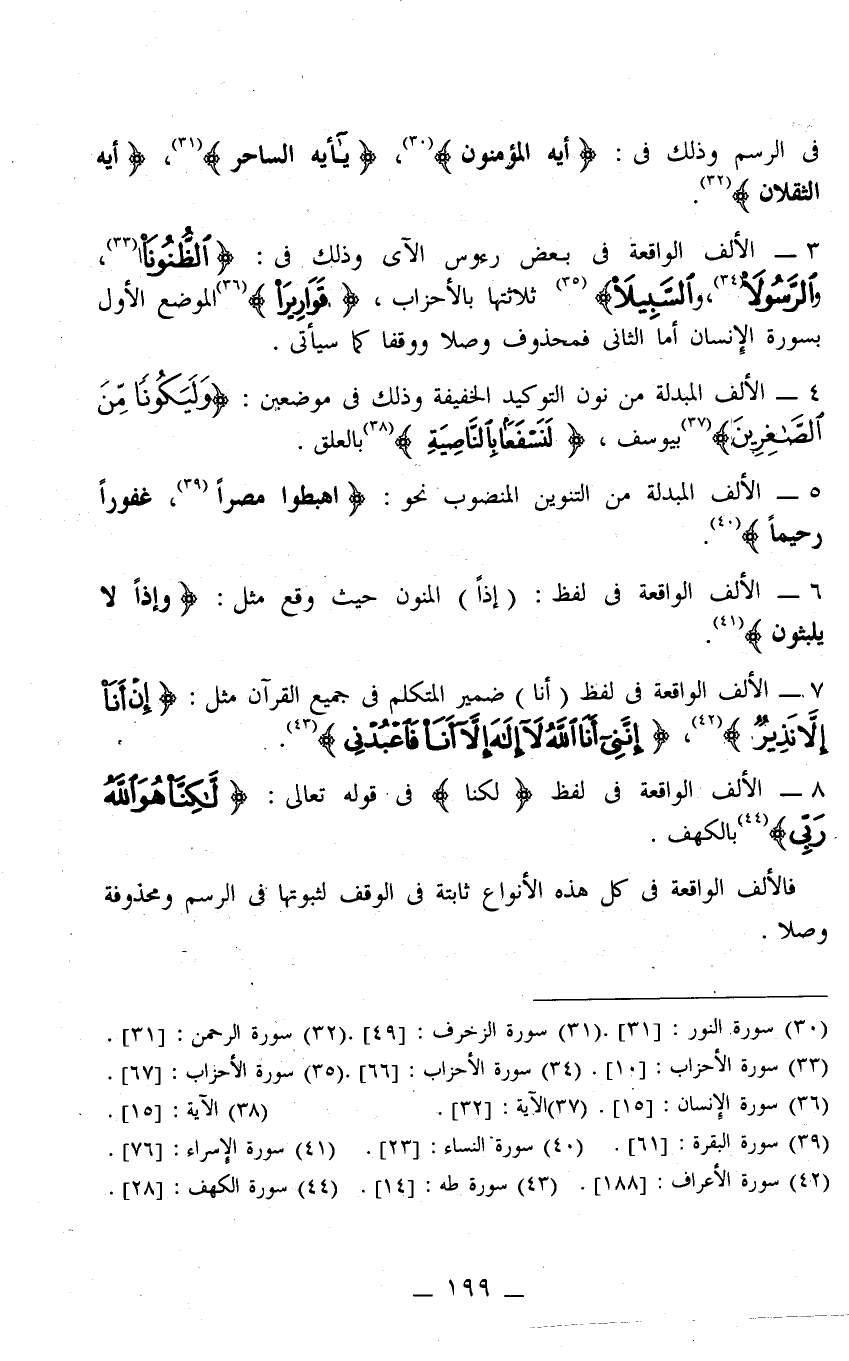 فى الرسم وذلك فى : ﴿ أيه المؤمنون ﴾(٣٠)، ﴿ يـٰٓأيه الساحر ﴾(٣١)، ﴿ أيه
الثقلان ﴾(٣٢).
٣ — الألف الواقعة فى بعض رءوس الآى وذلك فى : ﴿ ٱلظُّنُونَا۠(٣٣)،
وٱلرَّسُولَا۠(٣٤)،وٱلسَّبِيلَا۠﴾(٣٥) ثلاثتها بالأحزاب ، ﴿ قَوَارِيرَا۠ ﴾(٣٦)الموضع الأول
بسورة الإنسان أما الثانى فمحذوف وصلا ووقفا كما سيأتى .
٤ — الألف المبدلة من نون التوكيد الخفيفة وذلك فى موضعين : ﴿وَلَيَكُونًا مِّنَ
ٱلصَّـٰغِرِينَ﴾(٣٧)بيوسف ، ﴿ لَنَسْفَعَۢا بِٱلنَّاصِيَةِ ﴾(٣٨)بالعلق .
٥ — الألف المبدلة من التنوين المنصوب نحو : ﴿ اهبطوا مصراً (٣٩)، غفوراً
رحيماً ﴾(٤٠).
٦ — الألف الواقعة فى لفظ : ( إذاً ) المنون حيث وقع مثل : ﴿ وإذاً لا
يلبثون ﴾(٤١).
٧ — الألف الواقعة فى لفظ ( أنا ) ضمير المتكلم فى جميع القرآن مثل : ﴿ إِنْ أَنَا۠
إِلَّا نَذِيرٌ ﴾(٤٢)، ﴿ إِنَّنِىٓ أَنَا ٱللَّهُ لَآ إِلَـٰهَ إِلَّآ أَنَا۠ فَٱعْبُدْنِى ﴾(٤٣).
٨ — الألف الواقعة فى لفظ ﴿ لكنا ﴾ فى قوله تعالى : ﴿ لَّـٰكِنَّا۠ هُوَ ٱللَّهُ
رَبِّى ﴾(٤٤)بالكهف .
فالألف الواقعة فى كل هذه الأنواع ثابتة فى الوقف لثبوتها فى الرسم ومحذوفة
وصلا .
(٣٠) سورة النور : [٣١] .(٣١) سورة الزخرف : [٤٩] .(٣٢) سورة الرحمن : [٣١] .
(٣٣) سورة الأحزاب : [١٠] . (٣٤) سورة الأحزاب : [٦٦] .(٣٥) سورة الأحزاب : [٦٧] .
(٣٦) سورة الإنسان : [١٥] . (٣٧)الآية : [٣٢] . (٣٨) الآية : [١٥] .
(٣٩) سورة البقرة : [٦١] . (٤٠) سورة النساء : [٢٣] . (٤١) سورة الإسراء : [٧٦] .
(٤٢) سورة الأعراف : [١٨٨] . (٤٣) سورة طه : [١٤] . (٤٤) سورة الكهف : [٢٨] .
— ١٩٩ —